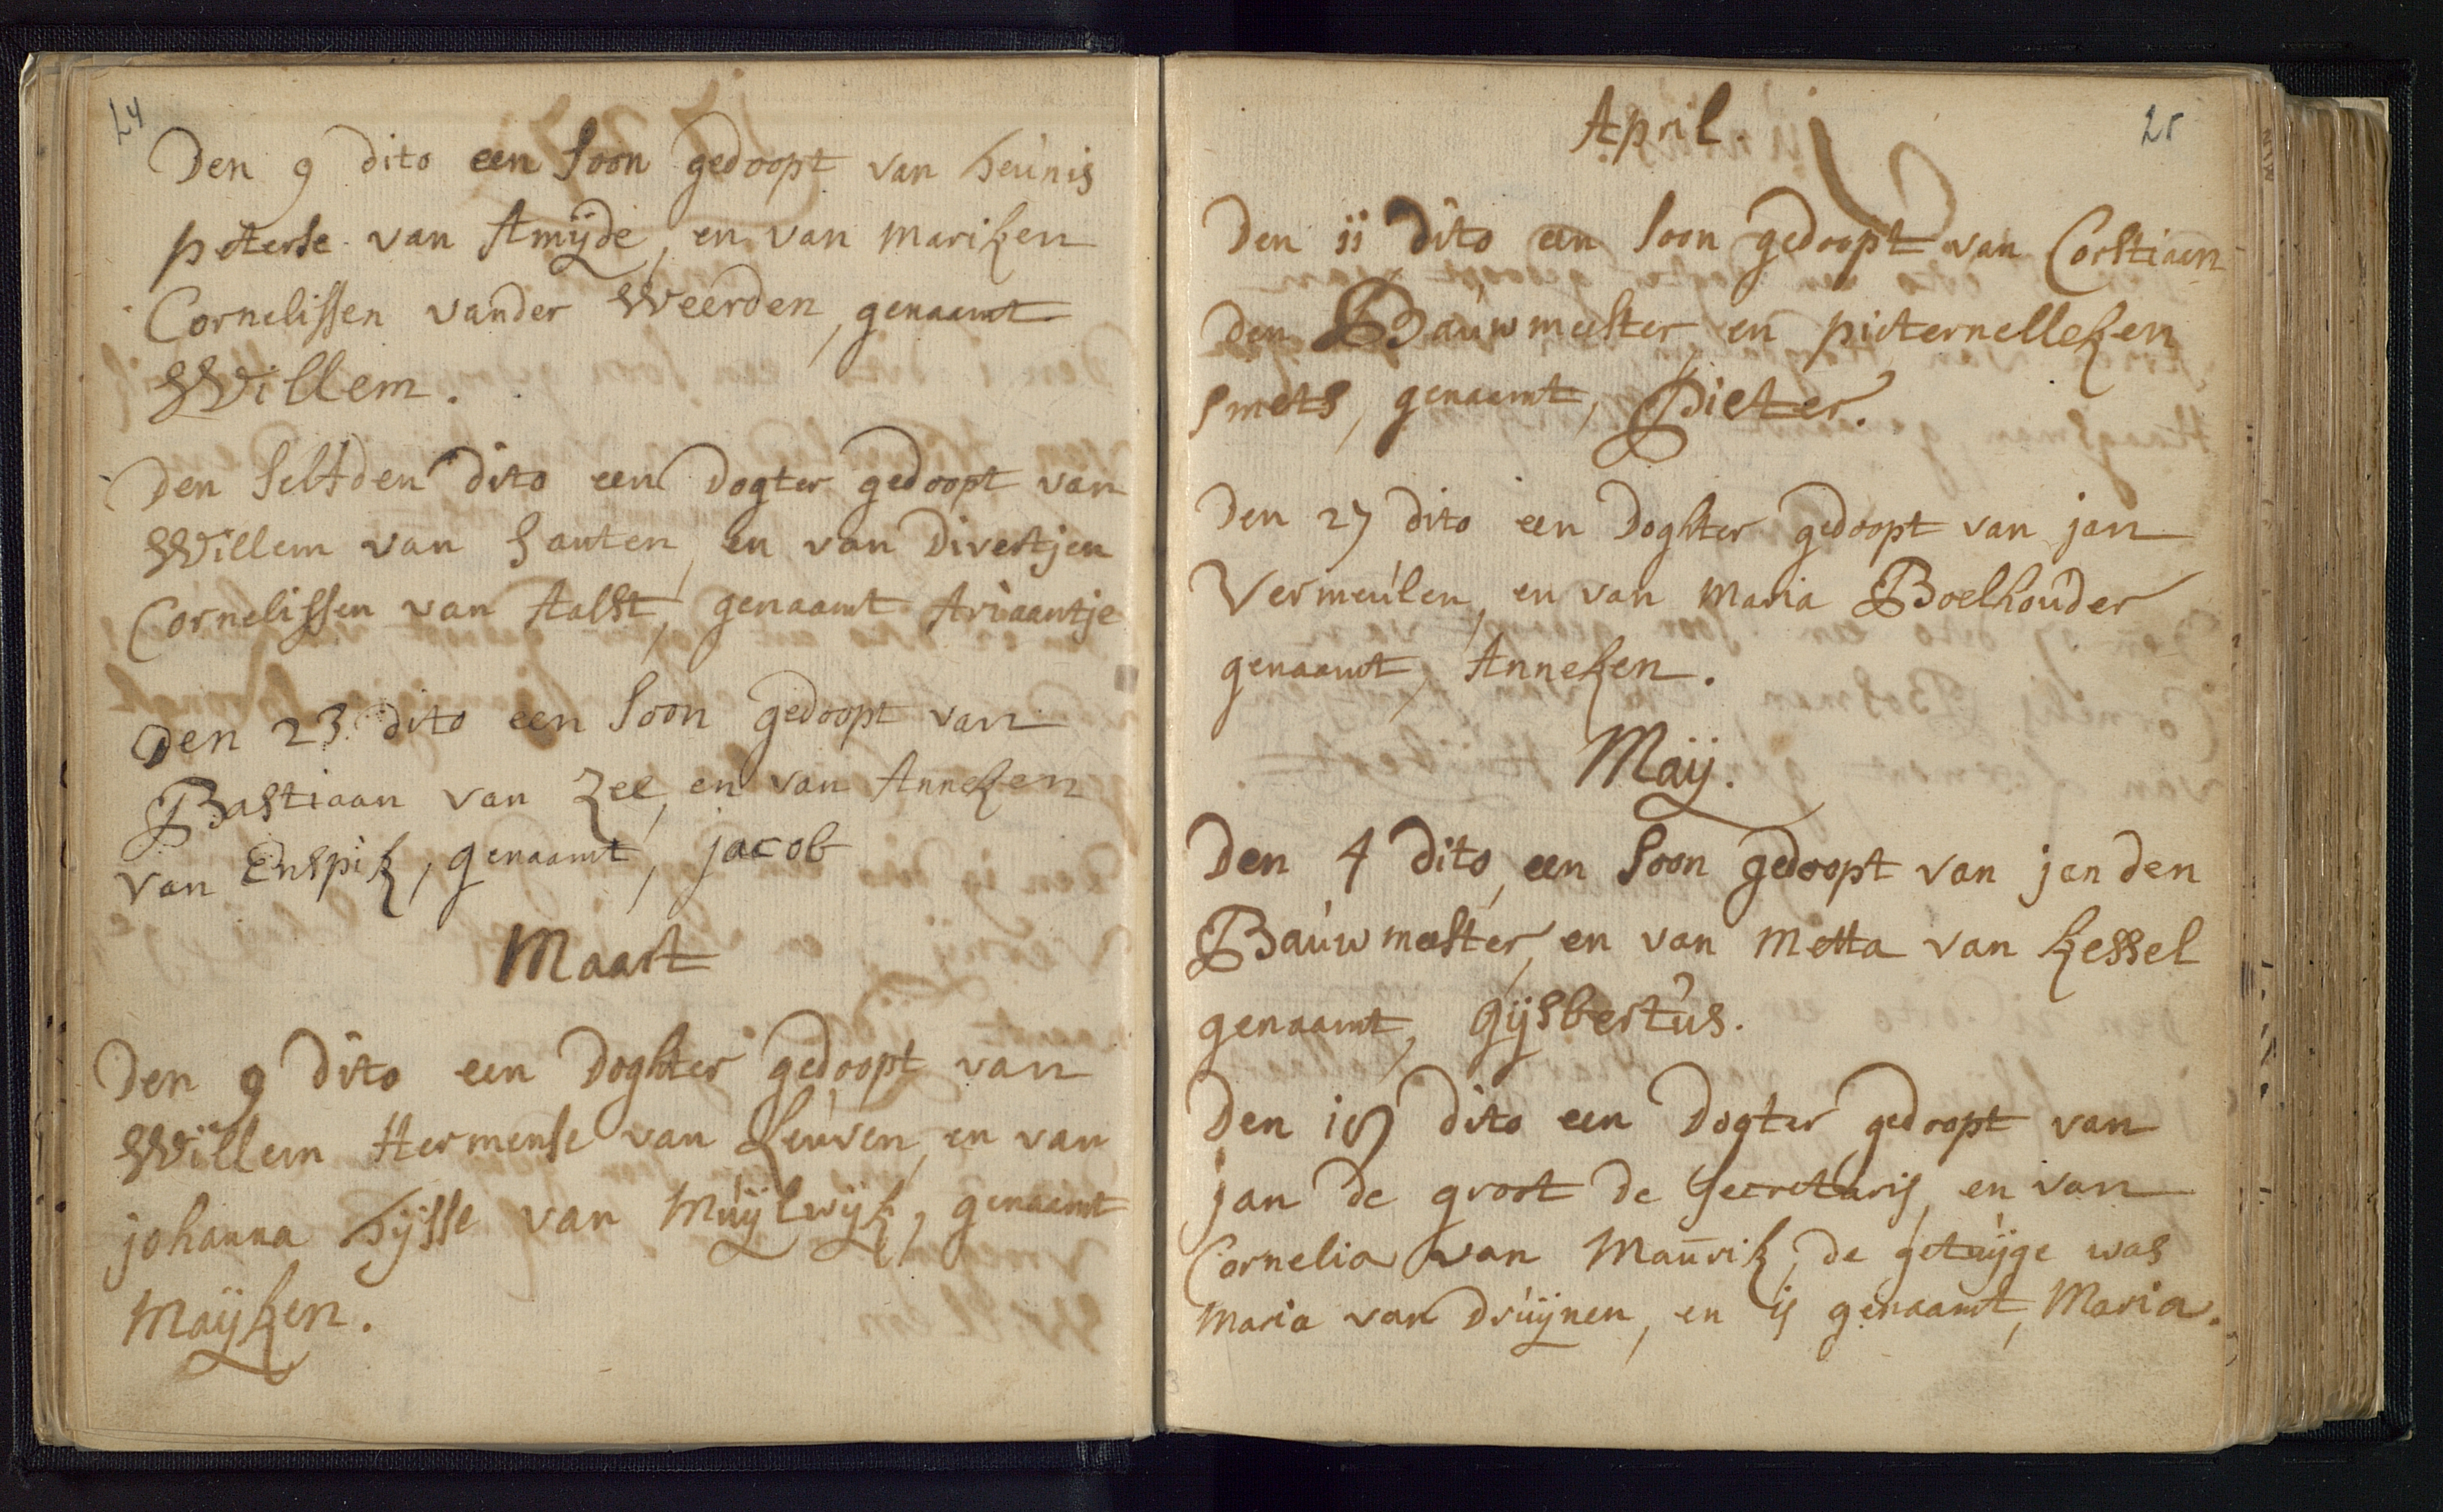 24
Den 9 dito een soon gedoopt van teúnis
peterse van Amijde, en van mariken
Cornelissen vander Weerden, genaamt
Willem.
Den selfden dito een dogter gedoopt van
Willem van santen, en van Divertjen
Cornelissen van Aalst, genaamt Ariaantje
Den 23 dito een soon gedoopt van
Bastiaan van Zee, en van Anneken
van Enspik, genaamt, jacob
Maart
Den 9 dito een doghter gedoopt van
Willem Hermense van Leúven, en van
johanna tijsse van Múijlwijk, genaamt
Maijken.
25
April.
Den ii dito een soon gedoopt van Corstiaen
den Baúwmeester en pieternelleken
smets, genaamt, Pieter.
Den 27 dito een Doghter gedoopt van jan
Vermeúlen, en van Maria Boelhoúder
genaamt, Anneken.
Maij.
Den 4 dito, een soon gedoopt van jan den
Baúwmeester, en van Metta van kessel
genaamt, Gijsbertús.
Den dito een Dogter gedoopt van
jan de groot de Secretaris, en van
Cornelia van Maúrik, de getúijge was
Maria van Drúijnen, en is genaamt, Maria.